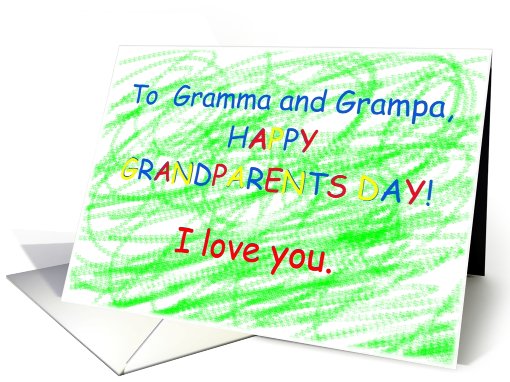 To Gramma and Grampa,
HAPPY
GRANDPARENTS DAY!
I love you.